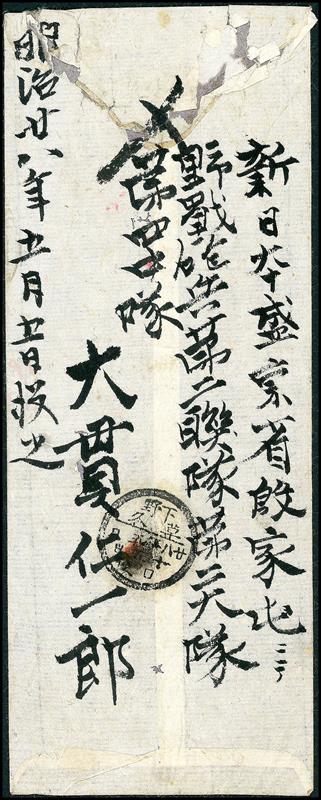 新日本盛京省殷家屯ニテ
野戰砲兵第二聯隊第二大隊
第四中隊
大貫仁一郎
明治廿八年五月五日投之
〆
下野